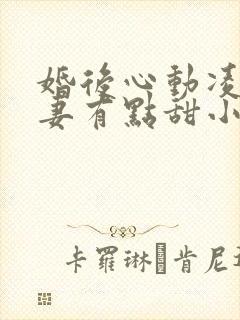 婚後心動凌
妻有點甜小
卡羅琳 肯尼